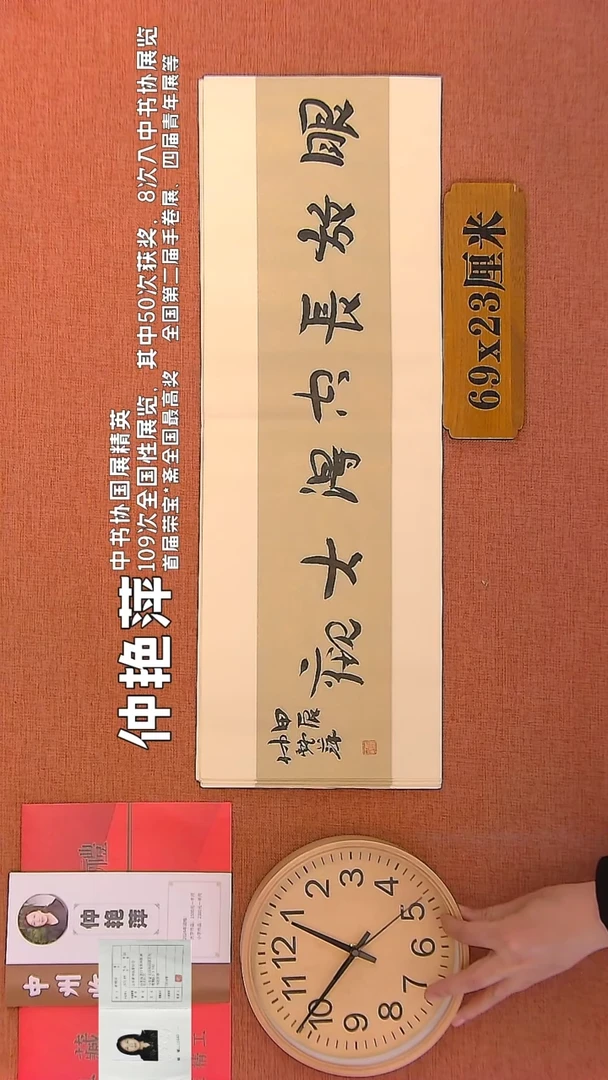 中书协国展精英
109次全国性展览，其中50次获奖，8次入中书协展览
首届荣宝*斋全国最高奖 全国第二届手卷展、四届青年展等
仲艳萍
眼放長空得大觀
甲辰
仲艷萍
69x23厘米
仲艳萍
中州
藏
12
1
2
3
4
5
6
7
8
9
10
11